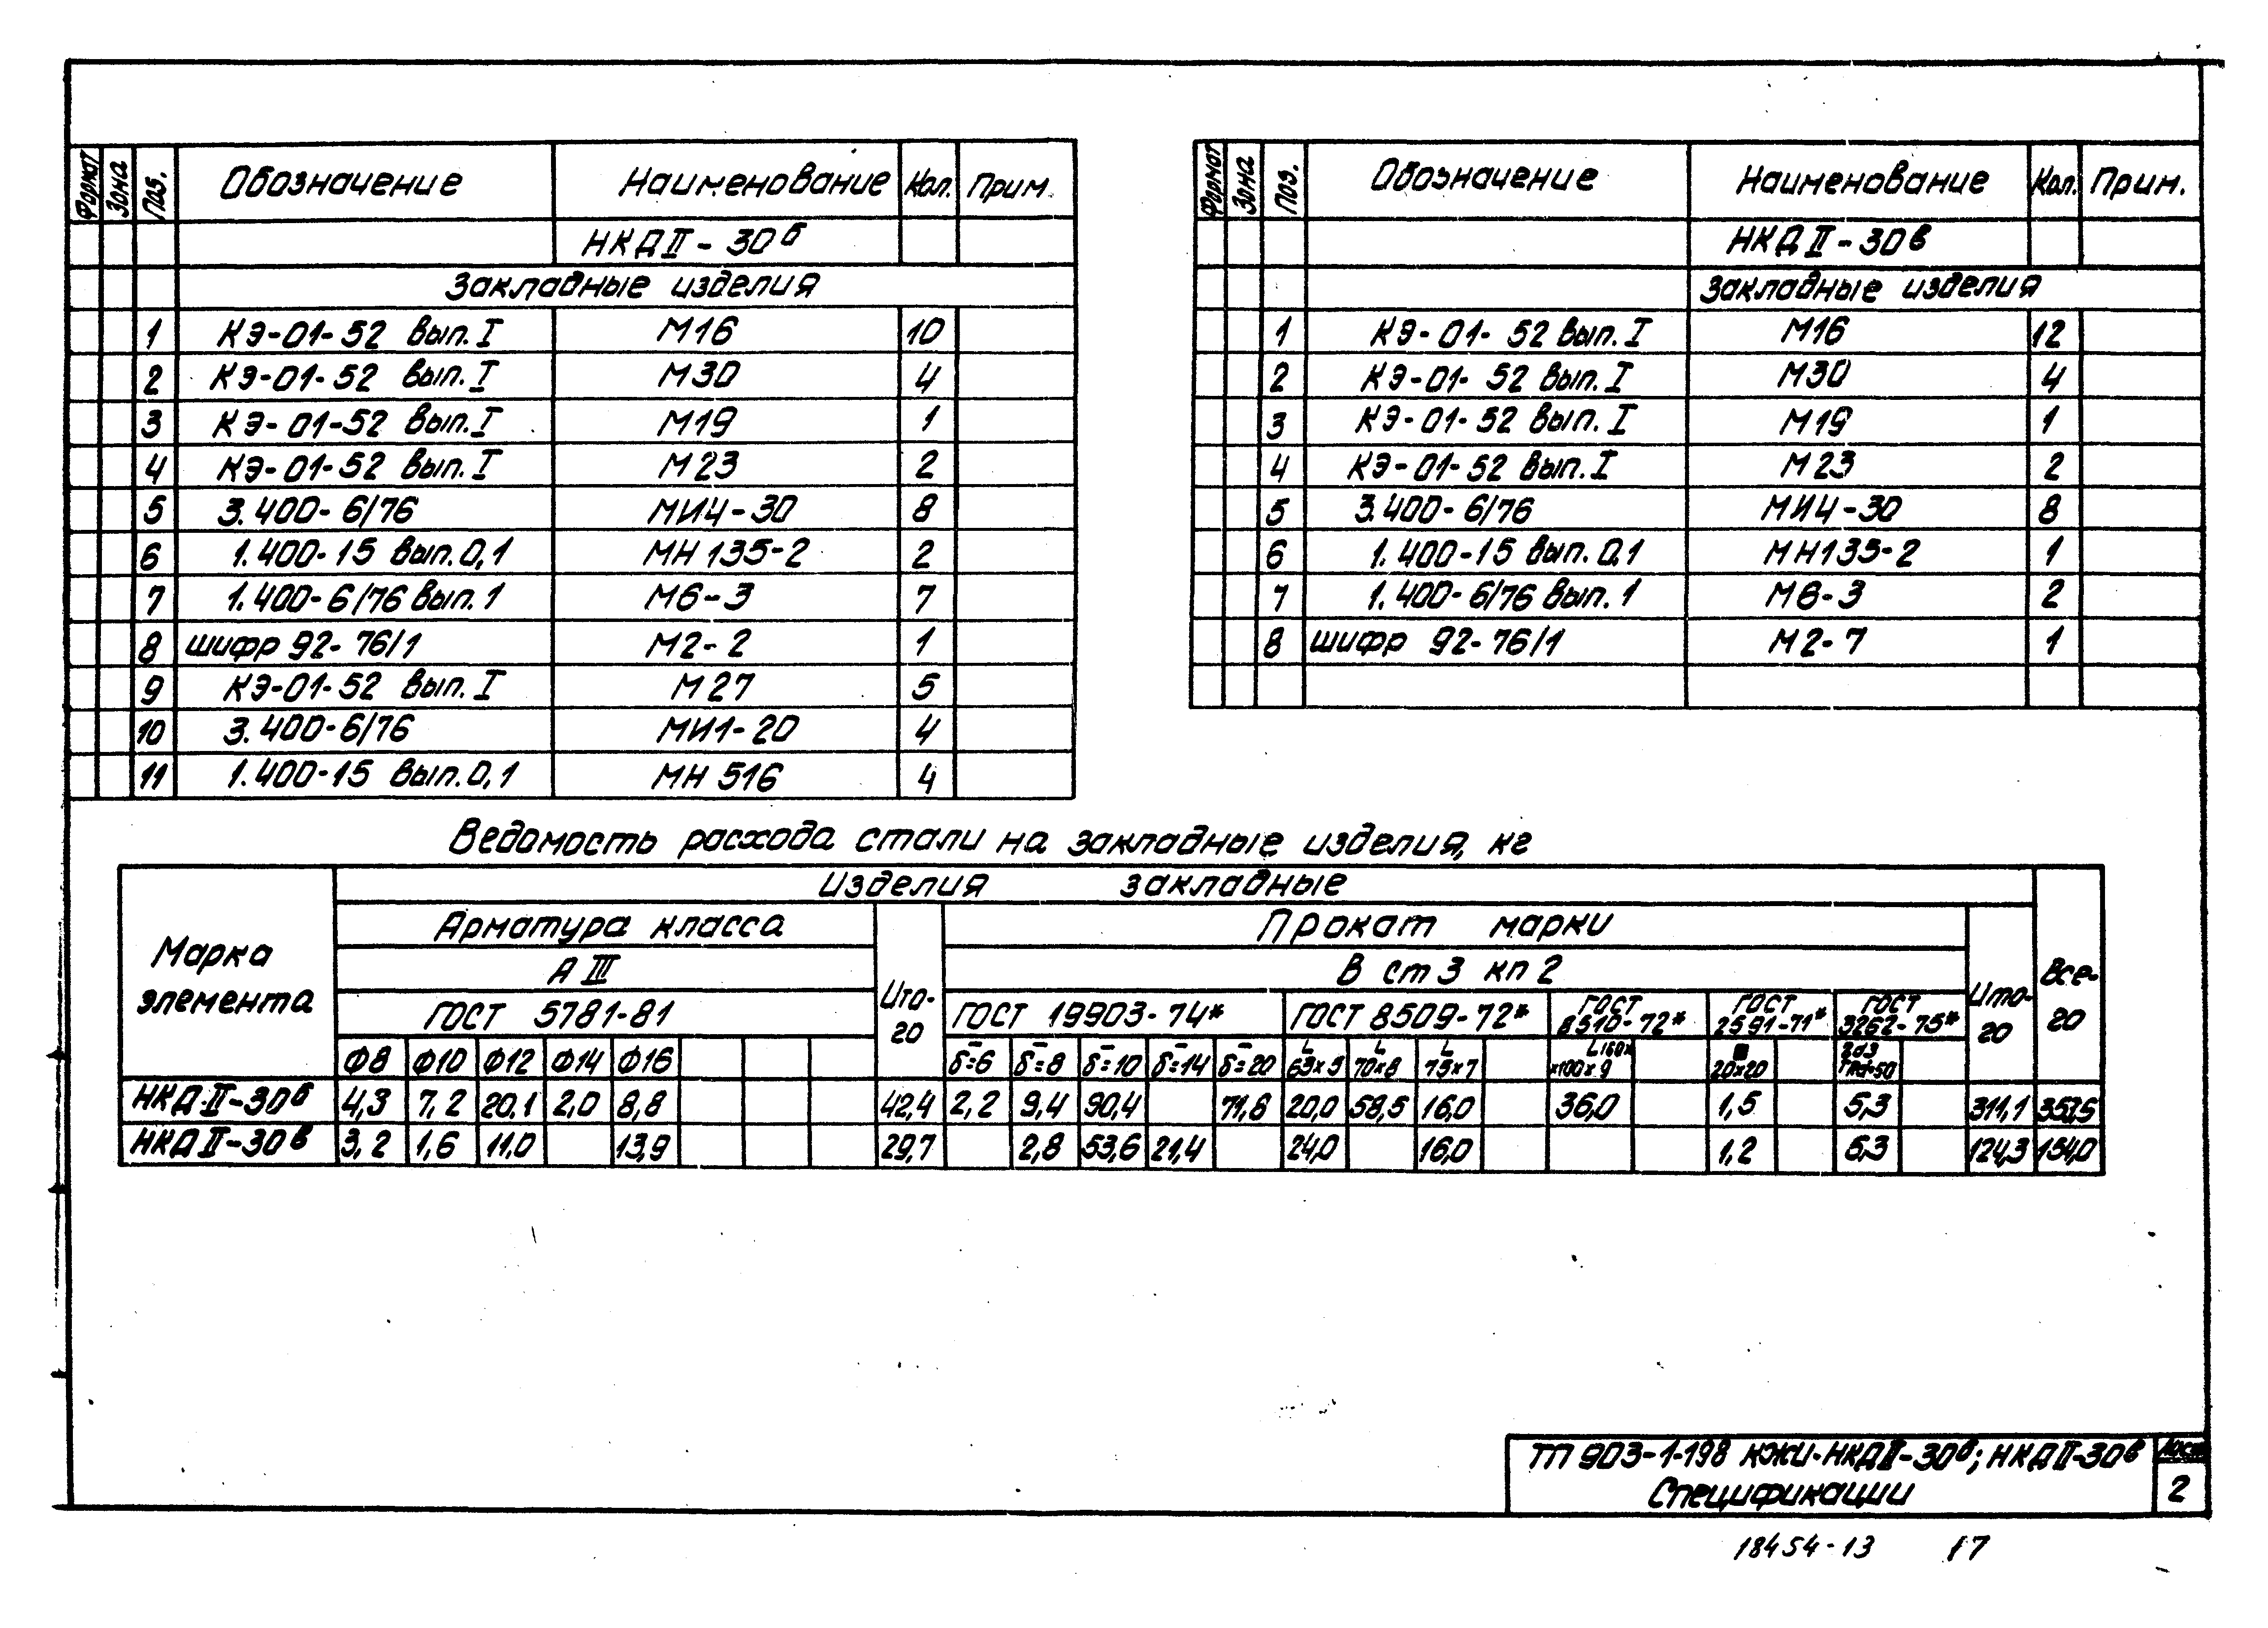 Формат Зона Поз. Обозначение Наименование Кол. Прим.
НКДII-30б
Закладные изделия
1 КЭ-01-52 вып.I М16 10
2 КЭ-01-52 вып.I М30 4
3 КЭ-01-52 вып.I М19 1
4 КЭ-01-52 вып.I М23 2
5 3.400-6/76 МИ4-30 8
6 1.400-15 вып.0,1 МН135-2 2
7 1.400-6/76 вып.1 М6-3 7
8 шифр 92-76/1 М2-2 1
9 КЭ-01-52 вып.I М27 5
10 3.400-6/76 МИ1-20 4
11 1.400-15 вып.0,1 МН516 4
Формат Зона Поз. Обозначение Наименование Кол. Прим.
НКДII-30в
Закладные изделия
1 КЭ-01-52 вып.I М16 12
2 КЭ-01-52 вып.I М30 4
3 КЭ-01-52 вып.I М19 1
4 КЭ-01-52 вып.I М23 2
5 3.400-6/76 МИ4-30 8
6 1.400-15 вып.0,1 МН135-2 1
7 1.400-6/76 вып.1 М6-3 2
8 шифр 92-76/1 М2-7 1
Ведомость расхода стали на закладные изделия, кг
Марка элемента
Изделия закладные
Все-
го
Арматура класса
Ито-
го
Прокат марки
Ито-
го
А III
В ст 3 кп 2
ГОСТ 5781-81
ГОСТ 19903-74*
ГОСТ 8509-72*
ГОСТ 8510-72*
ГОСТ 2591-71*
ГОСТ 3262-75*
Ф8 Ф10 Ф12 Ф14 Ф16 δ=6 δ=8 δ=10 δ=14 δ=20 L 63×5 L 70×8 L 75×7 L160××100×9 ■ 20×20
НКД-II-30б 4,3 7,2 20,1 2,0 8,8 42,4 2,2 9,4 90,4 71,8 20,0 58,5 16,0 36,0 1,5 5,3 311,1 353,5
НКДII-30в 3,2 1,6 11,0 13,9 29,7 2,8 53,6 21,4 24,0 16,0 1,2 5,3 124,3 154,0
ТП 903-1-198 КЖИ-НКДII-30б; НКДII-30в
Лист
Спецификации
2
18454-13 17